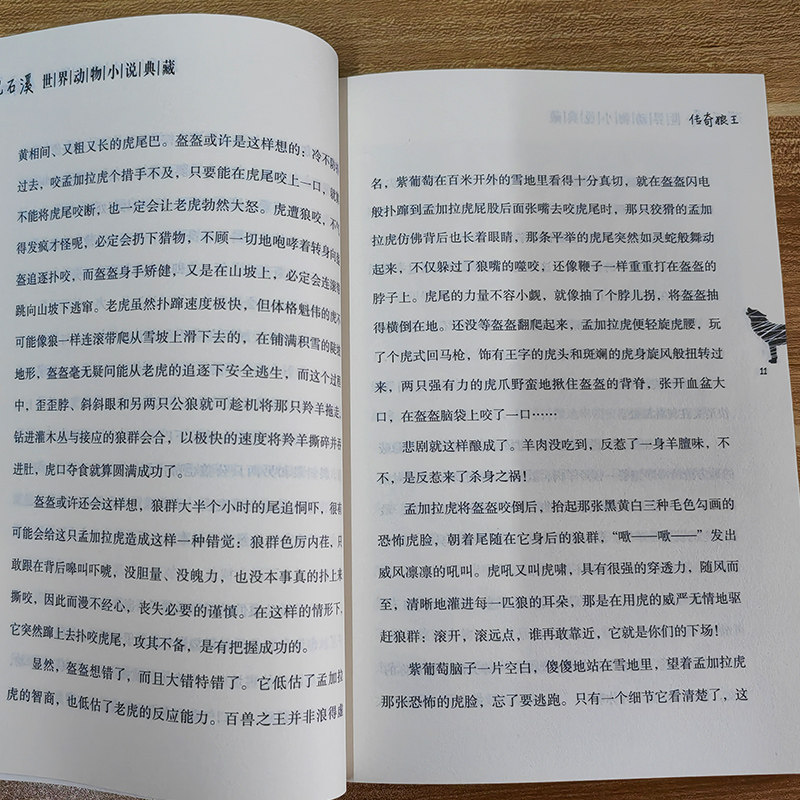 石溪 世界动物小说典藏
黄相间、又粗又长的虎尾巴。盔盔或许是这样想的：冷不防
过去，咬孟加拉虎个措手不及，只要能在虎尾咬上一口，就
不能将虎尾咬断，也一定会让老虎勃然大怒。虎遭狼咬，不
得发疯才怪呢，必定会扔下猎物，不顾一切地咆哮着转身向
盔追逐扑咬，而盔盔身手矫健，又是在山坡上，必定会连滚带
跳向山坡下逃窜。老虎虽然扑蹿速度极快，但体格魁伟的虎不
可能像狼一样连滚带爬从雪坡上滑下去的，在铺满积雪的陡坡
地形，盔盔毫无疑问能从老虎的追逐下安全逃生，而这个过程
中，歪歪脖、斜斜眼和另两只公狼就可趁机将那只羚羊拖走，
钻进灌木丛与接应的狼群会合，以极快的速度将羚羊撕碎并吞
进肚，虎口夺食就算圆满成功了。
盔盔或许还会这样想，狼群大半个小时的尾追恫吓，很有
可能会给这只孟加拉虎造成这样一种错觉：狼群色厉内荏，只
敢跟在背后嗥叫吓唬，没胆量、没魄力，也没本事真的扑上来
撕咬，因此而漫不经心，丧失必要的谨慎。在这样的情形下，
它突然蹿上去扑咬虎尾，攻其不备，是有把握成功的。
显然，盔盔想错了，而且大错特错了。它低估了孟加拉
虎的智商，也低估了老虎的反应能力。百兽之王并非浪得虚
传奇狼王
名，紫葡萄在百米开外的雪地里看得十分真切，就在盔盔闪电
般扑蹿到孟加拉虎屁股后面张嘴去咬虎尾时，那只狡猾的孟加
拉虎仿佛背后也长着眼睛，那条平举的虎尾突然如灵蛇般舞动
起来，不仅躲过了狼嘴的噬咬，还像鞭子一样重重打在盔盔的
脖子上。虎尾的力量不容小觑，就像抽了个脖儿拐，将盔盔抽
得横倒在地。还没等盔盔翻爬起来，孟加拉虎便轻旋虎腰，玩
了个虎式回马枪，饰有王字的虎头和斑斓的虎身旋风般扭转过
来，两只强有力的虎爪野蛮地揪住盔盔的背脊，张开血盆大
口，在盔盔脑袋上咬了一口……
悲剧就这样酿成了。羊肉没吃到，反惹了一身羊膻味，不
不，是反惹来了杀身之祸！
孟加拉虎将盔盔咬倒后，抬起那张黑黄白三种毛色勾画的
恐怖虎脸，朝着尾随在它身后的狼群，“嗷——嗷——”发出
威风凛凛的吼叫。虎吼又叫虎啸，具有很强的穿透力，随风而
至，清晰地灌进每一匹狼的耳朵，那是在用虎的威严无情地驱
赶狼群：滚开，滚远点，谁再敢靠近，它就是你们的下场！
紫葡萄脑子一片空白，傻傻地站在雪地里，望着孟加拉虎
那张恐怖的虎脸，忘了要逃跑。只有一个细节它看清楚了，这
11